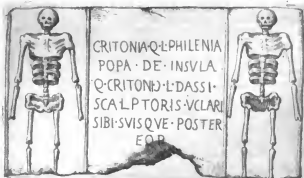 CRITONIA·Q·L·PHILENIA
POPA·DE·INSVLA
Q·CRITONI·Ɔ·L·DASSI·
SCALPTORIS·VCLARI
SIBI·SVISQVE·POSTER
EOR